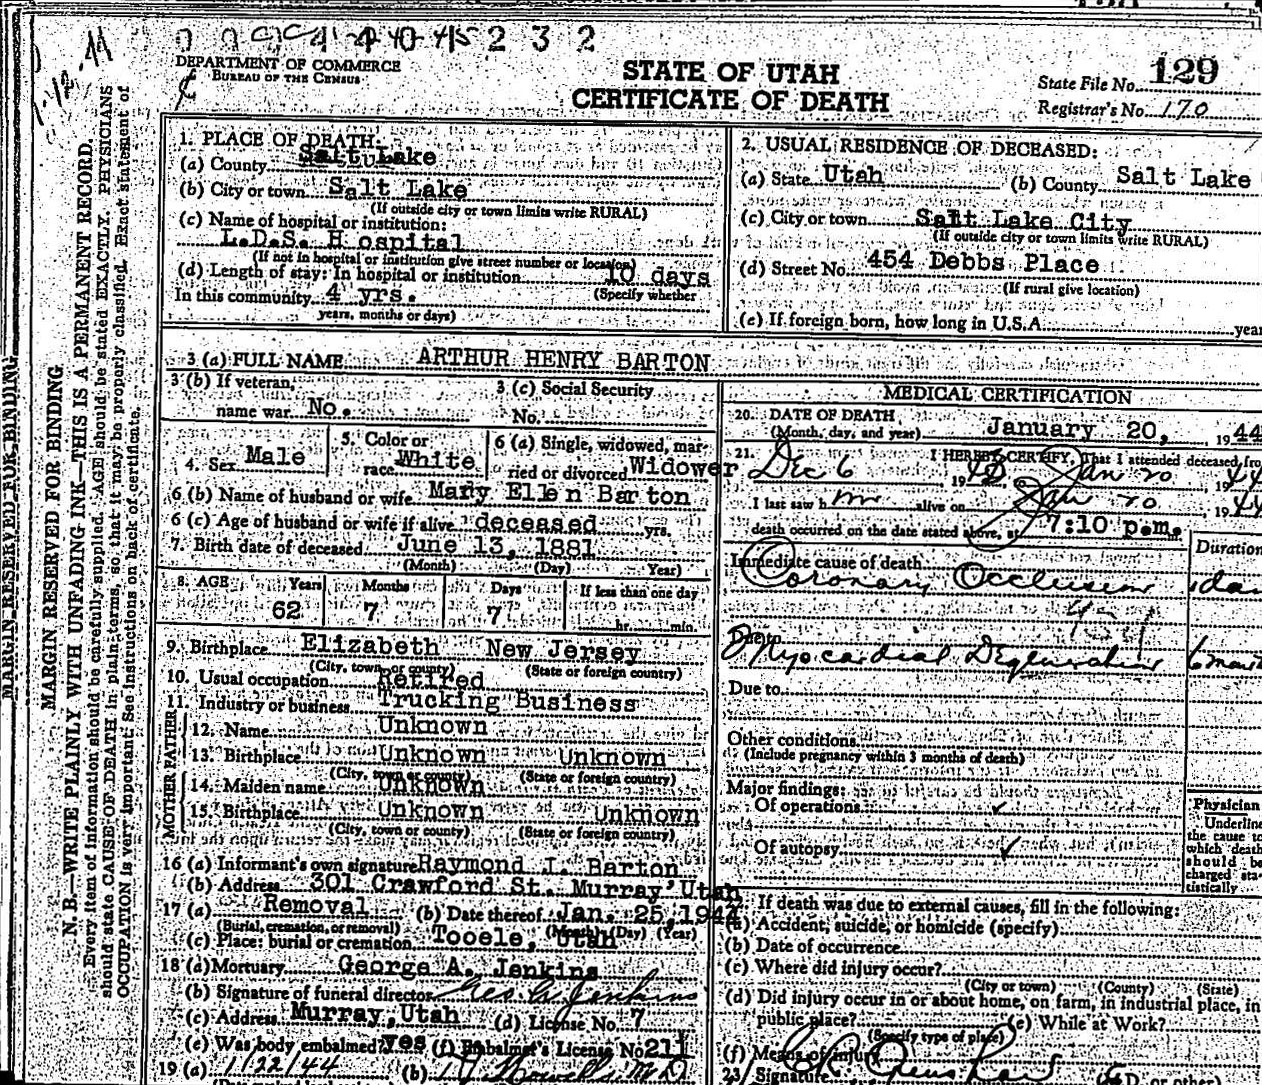 4 4 0 4 5 2 3 2
DEPARTMENT OF COMMERCE
BUREAU OF THE CENSUS
STATE OF UTAH
CERTIFICATE OF DEATH
State File No. 129
Registrar's No. 170
MARGIN RESERVED FOR BINDING
MARGIN RESERVED FOR BINDING
N. B.—WRITE PLAINLY WITH UNFADING INK—THIS IS A PERMANENT RECORD.
Every item of information should be carefully supplied. AGE should be stated EXACTLY. PHYSICIANS
should state CAUSE OF DEATH in plain terms, so that it may be properly classified. Exact statement of
OCCUPATION is very important. See instructions on back of certificate.
1. PLACE OF DEATH:
(a) County Salt Lake
(b) City or town Salt Lake
(If outside city or town limits write RURAL)
(c) Name of hospital or institution:
L.D.S. H ospital
(If not in hospital or institution give street number or location)
(d) Length of stay: In hospital or institution 10 days
(Specify whether
In this community 4 yrs.
years, months or days)
2. USUAL RESIDENCE OF DECEASED:
(a) State Utah (b) County Salt Lake
(c) City or town Salt Lake City
(If outside city or town limits write RURAL)
(d) Street No. 454 Debbs Place
(If rural give location)
(e) If foreign born, how long in U.S.A. year
3 (a) FULL NAME ARTHUR HENRY BARTON
3 (b) If veteran, 3 (c) Social Security
name war No. No.
4. Sex Male 5. Color or race White 6 (a) Single, widowed, mar-
ried or divorced Widower
6 (b) Name of husband or wife Mary Ellen Barton
6 (c) Age of husband or wife if alive deceased yrs.
7. Birth date of deceased June 13, 1881
(Month) (Day) Year)
8. AGE Years Months Days If less than one day
62 7 7 hr. min.
9. Birthplace Elizabeth New Jersey
(City, town or county) (State or foreign country)
10. Usual occupation Retired
11. Industry or business Trucking Business
FATHER
12. Name Unknown
13. Birthplace Unknown Unknown
(City, town or county) (State or foreign country)
MOTHER
14. Maiden name Unknown
15. Birthplace Unknown Unknown
(City, town or county) (State or foreign country)
16 (a) Informant's own signature Raymond J. Barton
(b) Address 301 Crawford St. Murray, Utah
17 (a) Removal (b) Date thereof Jan. 25, 1944
(Burial, cremation, or removal) (Month) (Day) (Year)
(c) Place: burial or cremation Tooele, Utah
18 (a) Mortuary George A. Jenkins
(b) Signature of funeral director Geo. A. Jenkins
(c) Address Murray, Utah (d) License No. 7
(e) Was body embalmed? yes (f) Embalmer's License No. 211
19 (a) 1/22/44 (b)
MEDICAL CERTIFICATION
20. DATE OF DEATH
(Month, day, and year) January 20, 1944
21. I HEREBY CERTIFY, That I attended deceased from
Dec 6, 19 Jan 20, 1944
I last saw him alive on Jan 20, 1944
death occurred on the date stated above, at 7:10 p.m.
Duration
Immediate cause of death
Coronary Occlusion 1 day
Due to
Myocardial Degeneration 6
Due to
Other conditions
(Include pregnancy within 3 months of death)
Major findings:
Of operations ✓
Of autopsy ✓
Physician
Underline
the cause to
which death
should be
charged sta-
tistically
22. If death was due to external causes, fill in the following:
(a) Accident, suicide, or homicide (specify)
(b) Date of occurrence
(c) Where did injury occur?
(City or town) (County) (State)
(d) Did injury occur in or about home, on farm, in industrial place, in
public place? (e) While at Work?
(Specify type of place)
(f) Means of injury
23/ Signature